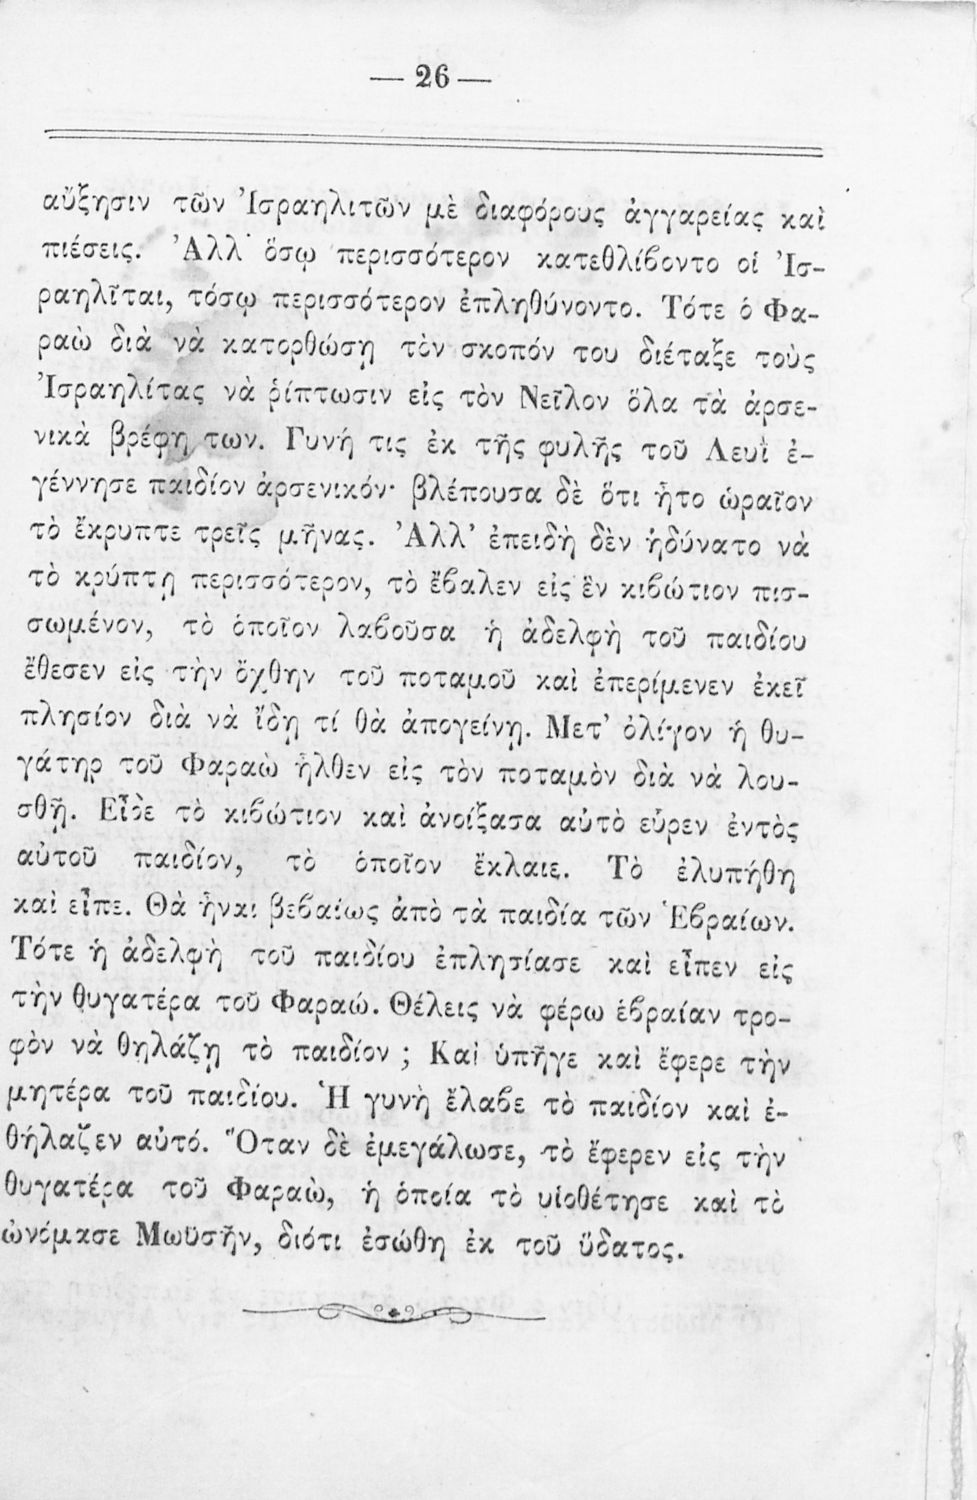 — 26 —
αὔξησιν τῶν Ἰσραηλιτῶν μὲ διαφόρους ἀγγαρείας καὶ
πιέσεις. Ἀλλ' ὅσῳ περισσότερον κατεθλίβοντο οἱ Ἰσ-
ραηλῖται, τόσῳ περισσότερον ἐπληθύνοντο. Τότε ὁ Φα-
ραὼ διὰ νὰ κατορθώσῃ τὸν σκοπόν του διέταξε τοὺς
Ἰσραηλίτας νὰ ῥίπτωσιν εἰς τὸν Νεῖλον ὅλα τὰ ἀρσε-
νικὰ βρέφη των. Γυνή τις ἐκ τῆς φυλῆς τοῦ Λευῒ ἐ-
γέννησε παιδίον ἀρσενικόν· βλέπουσα δὲ ὅτι ἦτο ὡραῖον
τὸ ἔκρυπτε τρεῖς μῆνας. Ἀλλ' ἐπειδὴ δὲν ἠδύνατο νὰ
τὸ κρύπτῃ περισσότερον, τὸ ἔβαλεν εἰς ἓν κιβώτιον πισ-
σωμένον, τὸ ὁποῖον λαβοῦσα ἡ ἀδελφὴ τοῦ παιδίου
ἔθεσεν εἰς τὴν ὄχθην τοῦ ποταμοῦ καὶ ἐπερίμενεν ἐκεῖ
πλησίον διὰ νὰ ἴδῃ τί θὰ ἀπογείνῃ. Μετ' ὀλίγον ἡ θυ-
γάτηρ τοῦ Φαραὼ ἦλθεν εἰς τὸν ποταμὸν διὰ νὰ λου-
σθῇ. Εἶδε τὸ κιβώτιον καὶ ἀνοίξασα αὐτὸ εὗρεν ἐντὸς
αὐτοῦ παιδίον, τὸ ὁποῖον ἔκλαιε. Τὸ ἐλυπήθη
καὶ εἶπε. Θὰ ἦναι βεβαίως ἀπὸ τὰ παιδία τῶν Ἑβραίων.
Τότε ἡ ἀδελφὴ τοῦ παιδίου ἐπλησίασε καὶ εἶπεν εἰς
τὴν θυγατέρα τοῦ Φαραώ. Θέλεις νὰ φέρω ἑβραίαν τρο-
φὸν νὰ θηλάζῃ τὸ παιδίον ; Καὶ ὑπῆγε καὶ ἔφερε τὴν
μητέρα τοῦ παιδίου. Ἡ γυνὴ ἔλαβε τὸ παιδίον καὶ ἐ-
θήλαζεν αὐτό. Ὅταν δὲ ἐμεγάλωσε, τὸ ἔφερεν εἰς τὴν
θυγατέρα τοῦ Φαραὼ, ἡ ὁποία τὸ υἱοθέτησε καὶ τὸ
ὠνόμασε Μωϋσῆν, διότι ἐσώθη ἐκ τοῦ ὕδατος.